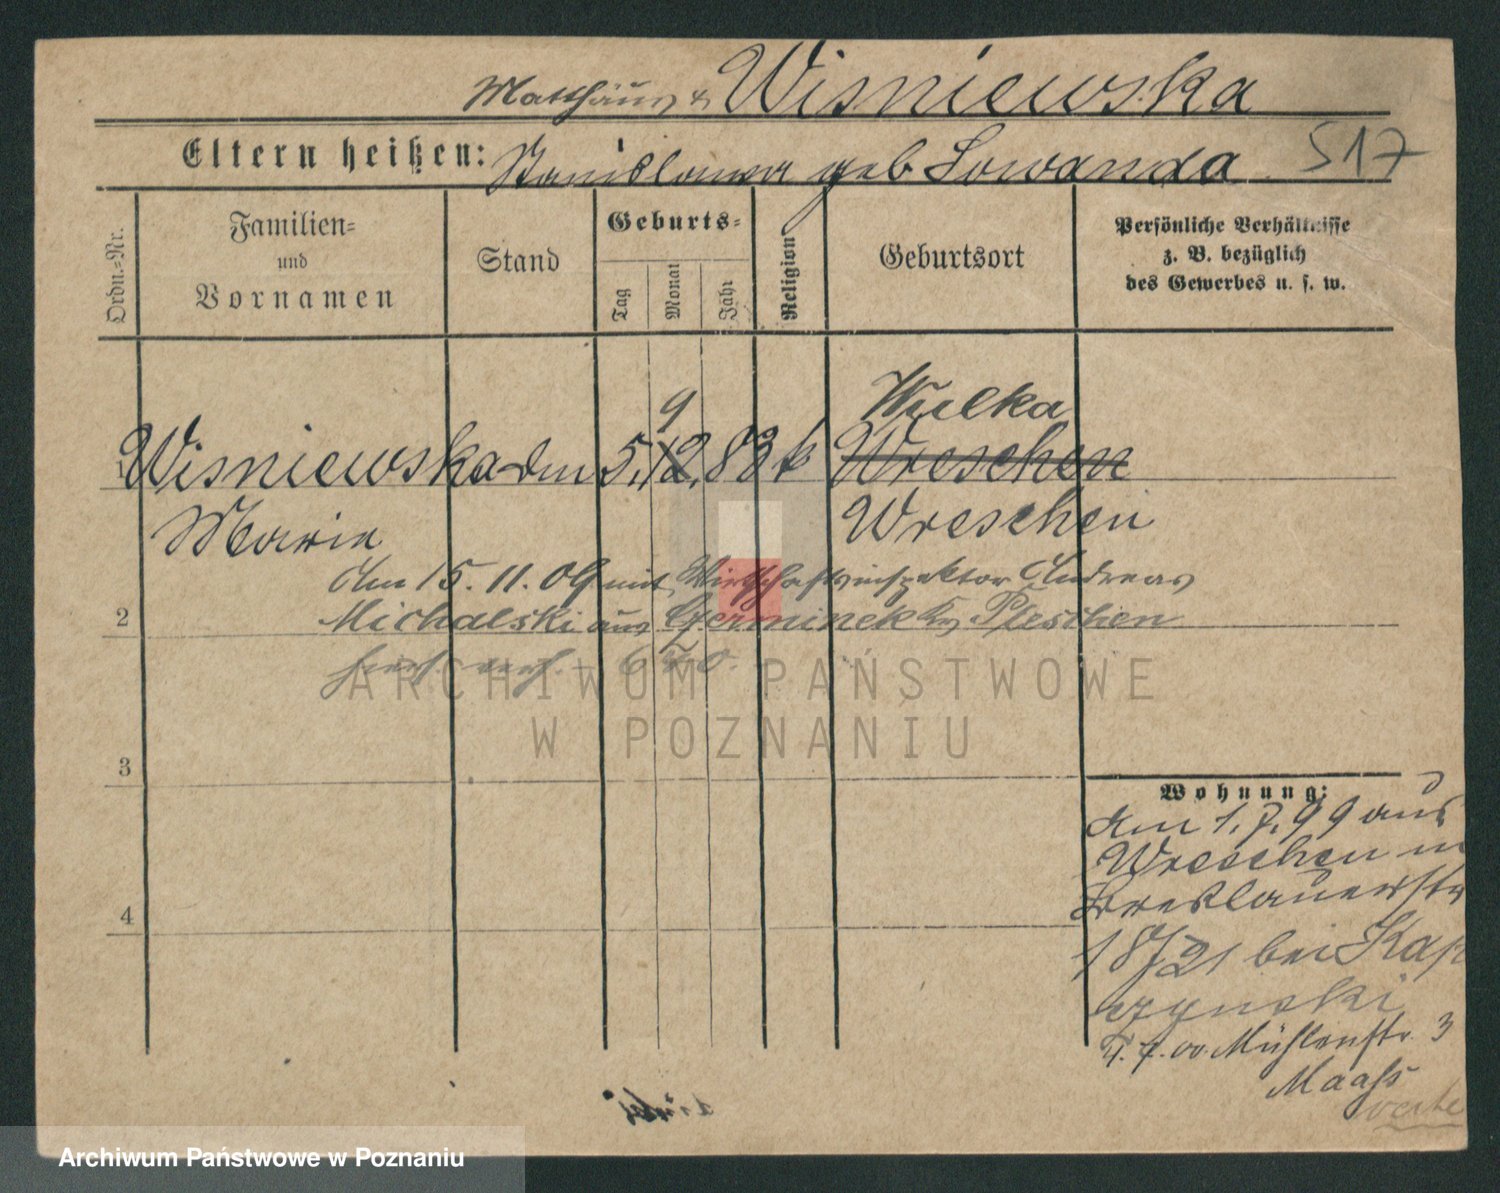 Matthäus & Wisniewska
Eltern heißen: Stanislawa geb Lowanda 517
Ordn.-Nr.
Familien-
und
Vornamen
Stand
Geburts-
Tag
Monat
Jahr
Religion
Geburtsort
Persönliche Verhältnisse
z. B. bezüglich
des Gewerbes u. s. w.
9 Wulka
1 Wisniewska 5. 12. 83 k Wreschen
Marie Wreschen
Am 15. 11. 09 mit Wirtschaftsinspektor Andreas
2 Michalski aus Pleschen
ARCHIWUM PAŃSTWOWE
W POZNANIU
3
Wohnung:
am 1. 7. 99 aus
Wreschen
Breslauerstr
18/21 bei Kap
czynski
4
4. 7. 00. Mühlenstr. 3
Maaß
Archiwum Państwowe w Poznaniu